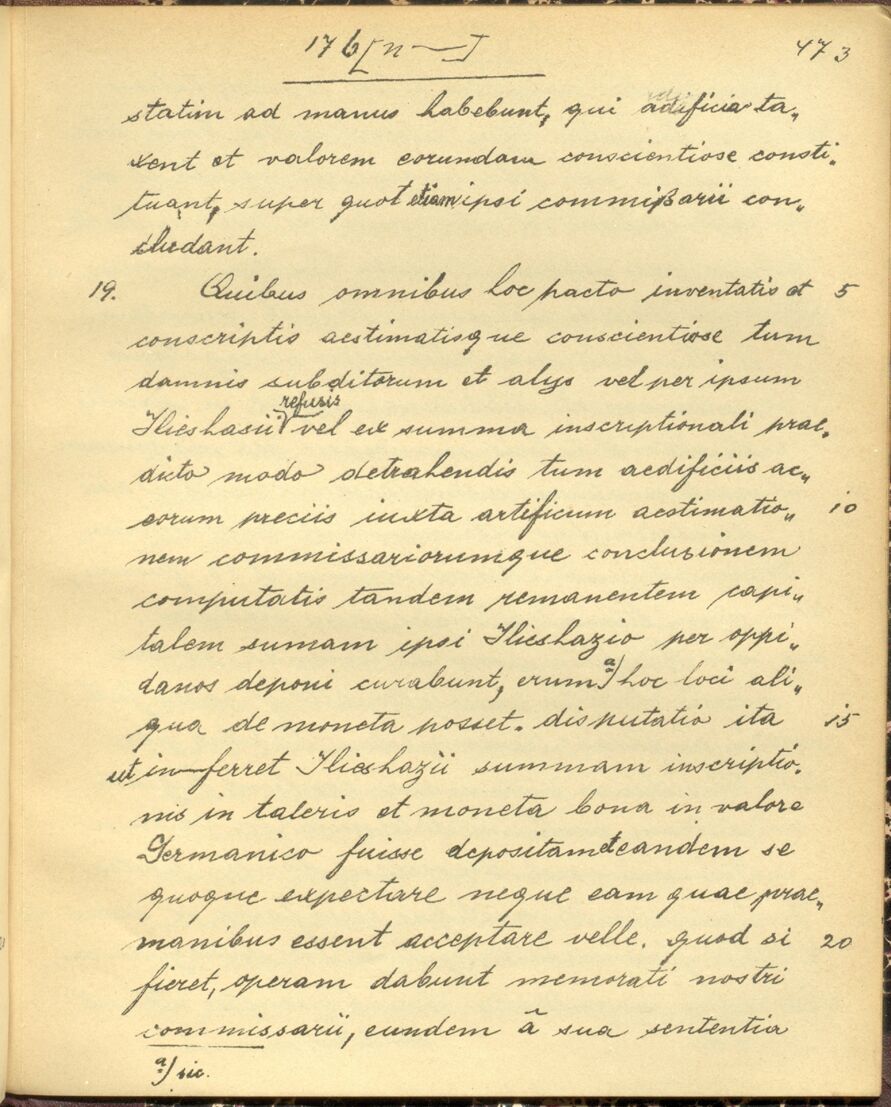 176 [n —]
473
statim ad manus habebunt, qui aedificia ta„
xent et valorem eorundam conscientiose consti„
tuant, super quot etiam ipsi commißarii con„
cludant.
19. Quibus omnibus hoc pacto inventatis et 5
conscriptis aestimatisque conscientiose tum
damnis subditorum et alys vel per ipsum
refusis
Ilieshasii vel ex summa inscriptionali prae„
dicto modo detrahendis tum aedificiis ac„
eorum preciis iuxta artificum aestimatio„ 10
nem commissariorumque conclusionem
computatis tandem remanentem capi„
talem sumam ipsi Ilieshazio per oppi„
danos deponi curabunt, erum a) hoc loci ali„
qua de moneta posset. disputatio ita 15
ut in-ferret Ilieshazii summam inscriptio„
nis in taleris et moneta bona in valore
Germanico fuisse depositam et eandem se
quoque expectare neque eam quae prae„
manibus essent acceptare velle. quod si 20
fieret, operam dabunt memorati nostri
commissarii, eundem â sua sententia
a) sic.